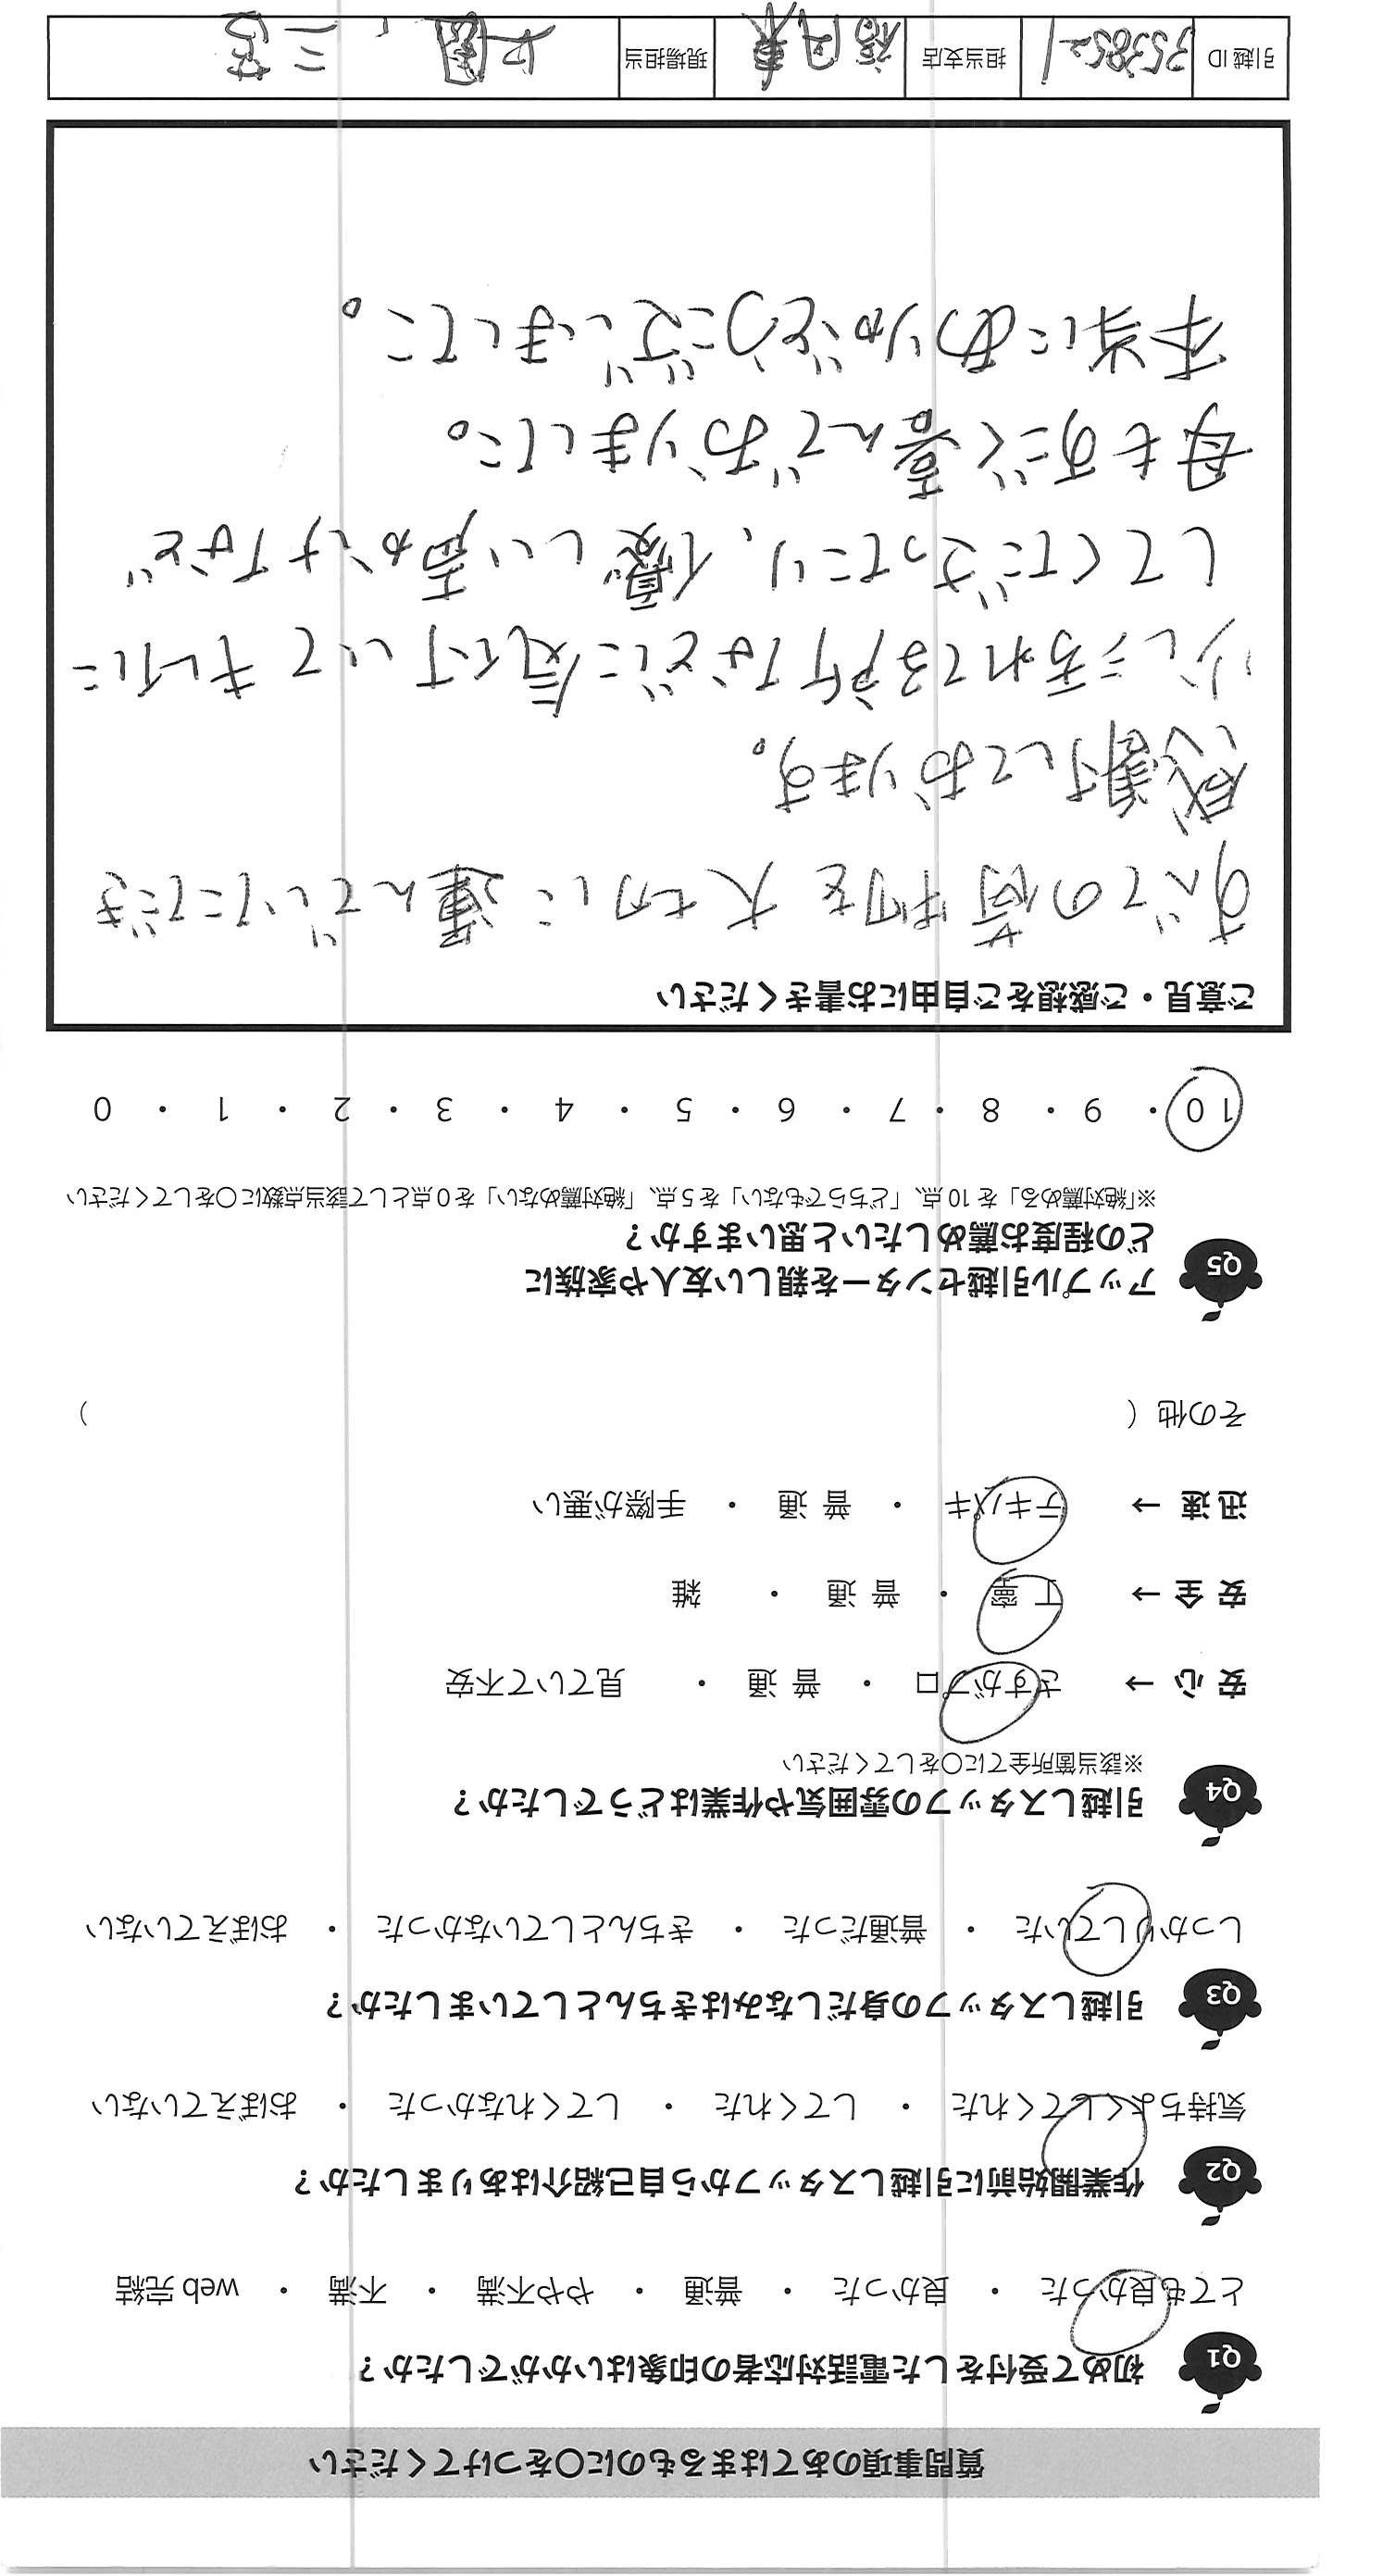 質問事項のあてはまるものに〇をつけてください
Q1 初めて受付をした電話対応者の印象はいかがでしたか?
とても良かった ・ 良かった ・ 普通 ・ やや不満 ・ 不満 ・ web 完結
Q2 作業開始前に引越しスタッフから自己紹介はありましたか?
気持ちよくしてくれた ・ してくれた ・ してくれなかった ・ おぼえていない
Q3 引越しスタッフの身だしなみはきちんとしていましたか?
しっかりしていた ・ 普通だった ・ きちんとしていなかった ・ おぼえていない
Q4 引越しスタッフの雰囲気や作業はどうでしたか?
※該当箇所全てに〇をしてください
安 心 → さすがプロ ・ 普 通 ・ 見ていて不安
安 全 → 丁 寧 ・ 普 通 ・ 雑
迅 速 → テキパキ ・ 普 通 ・ 手際が悪い
その他 ( )
Q5 アップル引越センターを親しい友人や家族に
どの程度お薦めしたいと思いますか?
※「絶対薦める」を 10 点、「どちらでもない」を 5 点、「絶対薦めない」を 0 点として該当点数に〇をしてください
10 ・ 9 ・ 8 ・ 7 ・ 6 ・ 5 ・ 4 ・ 3 ・ 2 ・ 1 ・ 0
ご意見・ご感想をご自由にお書きください
すべての荷物を大切に運んでいただき
感謝しております。
少し汚れてる所などに気付いてキレイに
してくださったり、優しい声かけなど
母もすごく喜んでおりました。
本当にありがとうございました。
引越 ID 担当支店 福岡東 現場担当